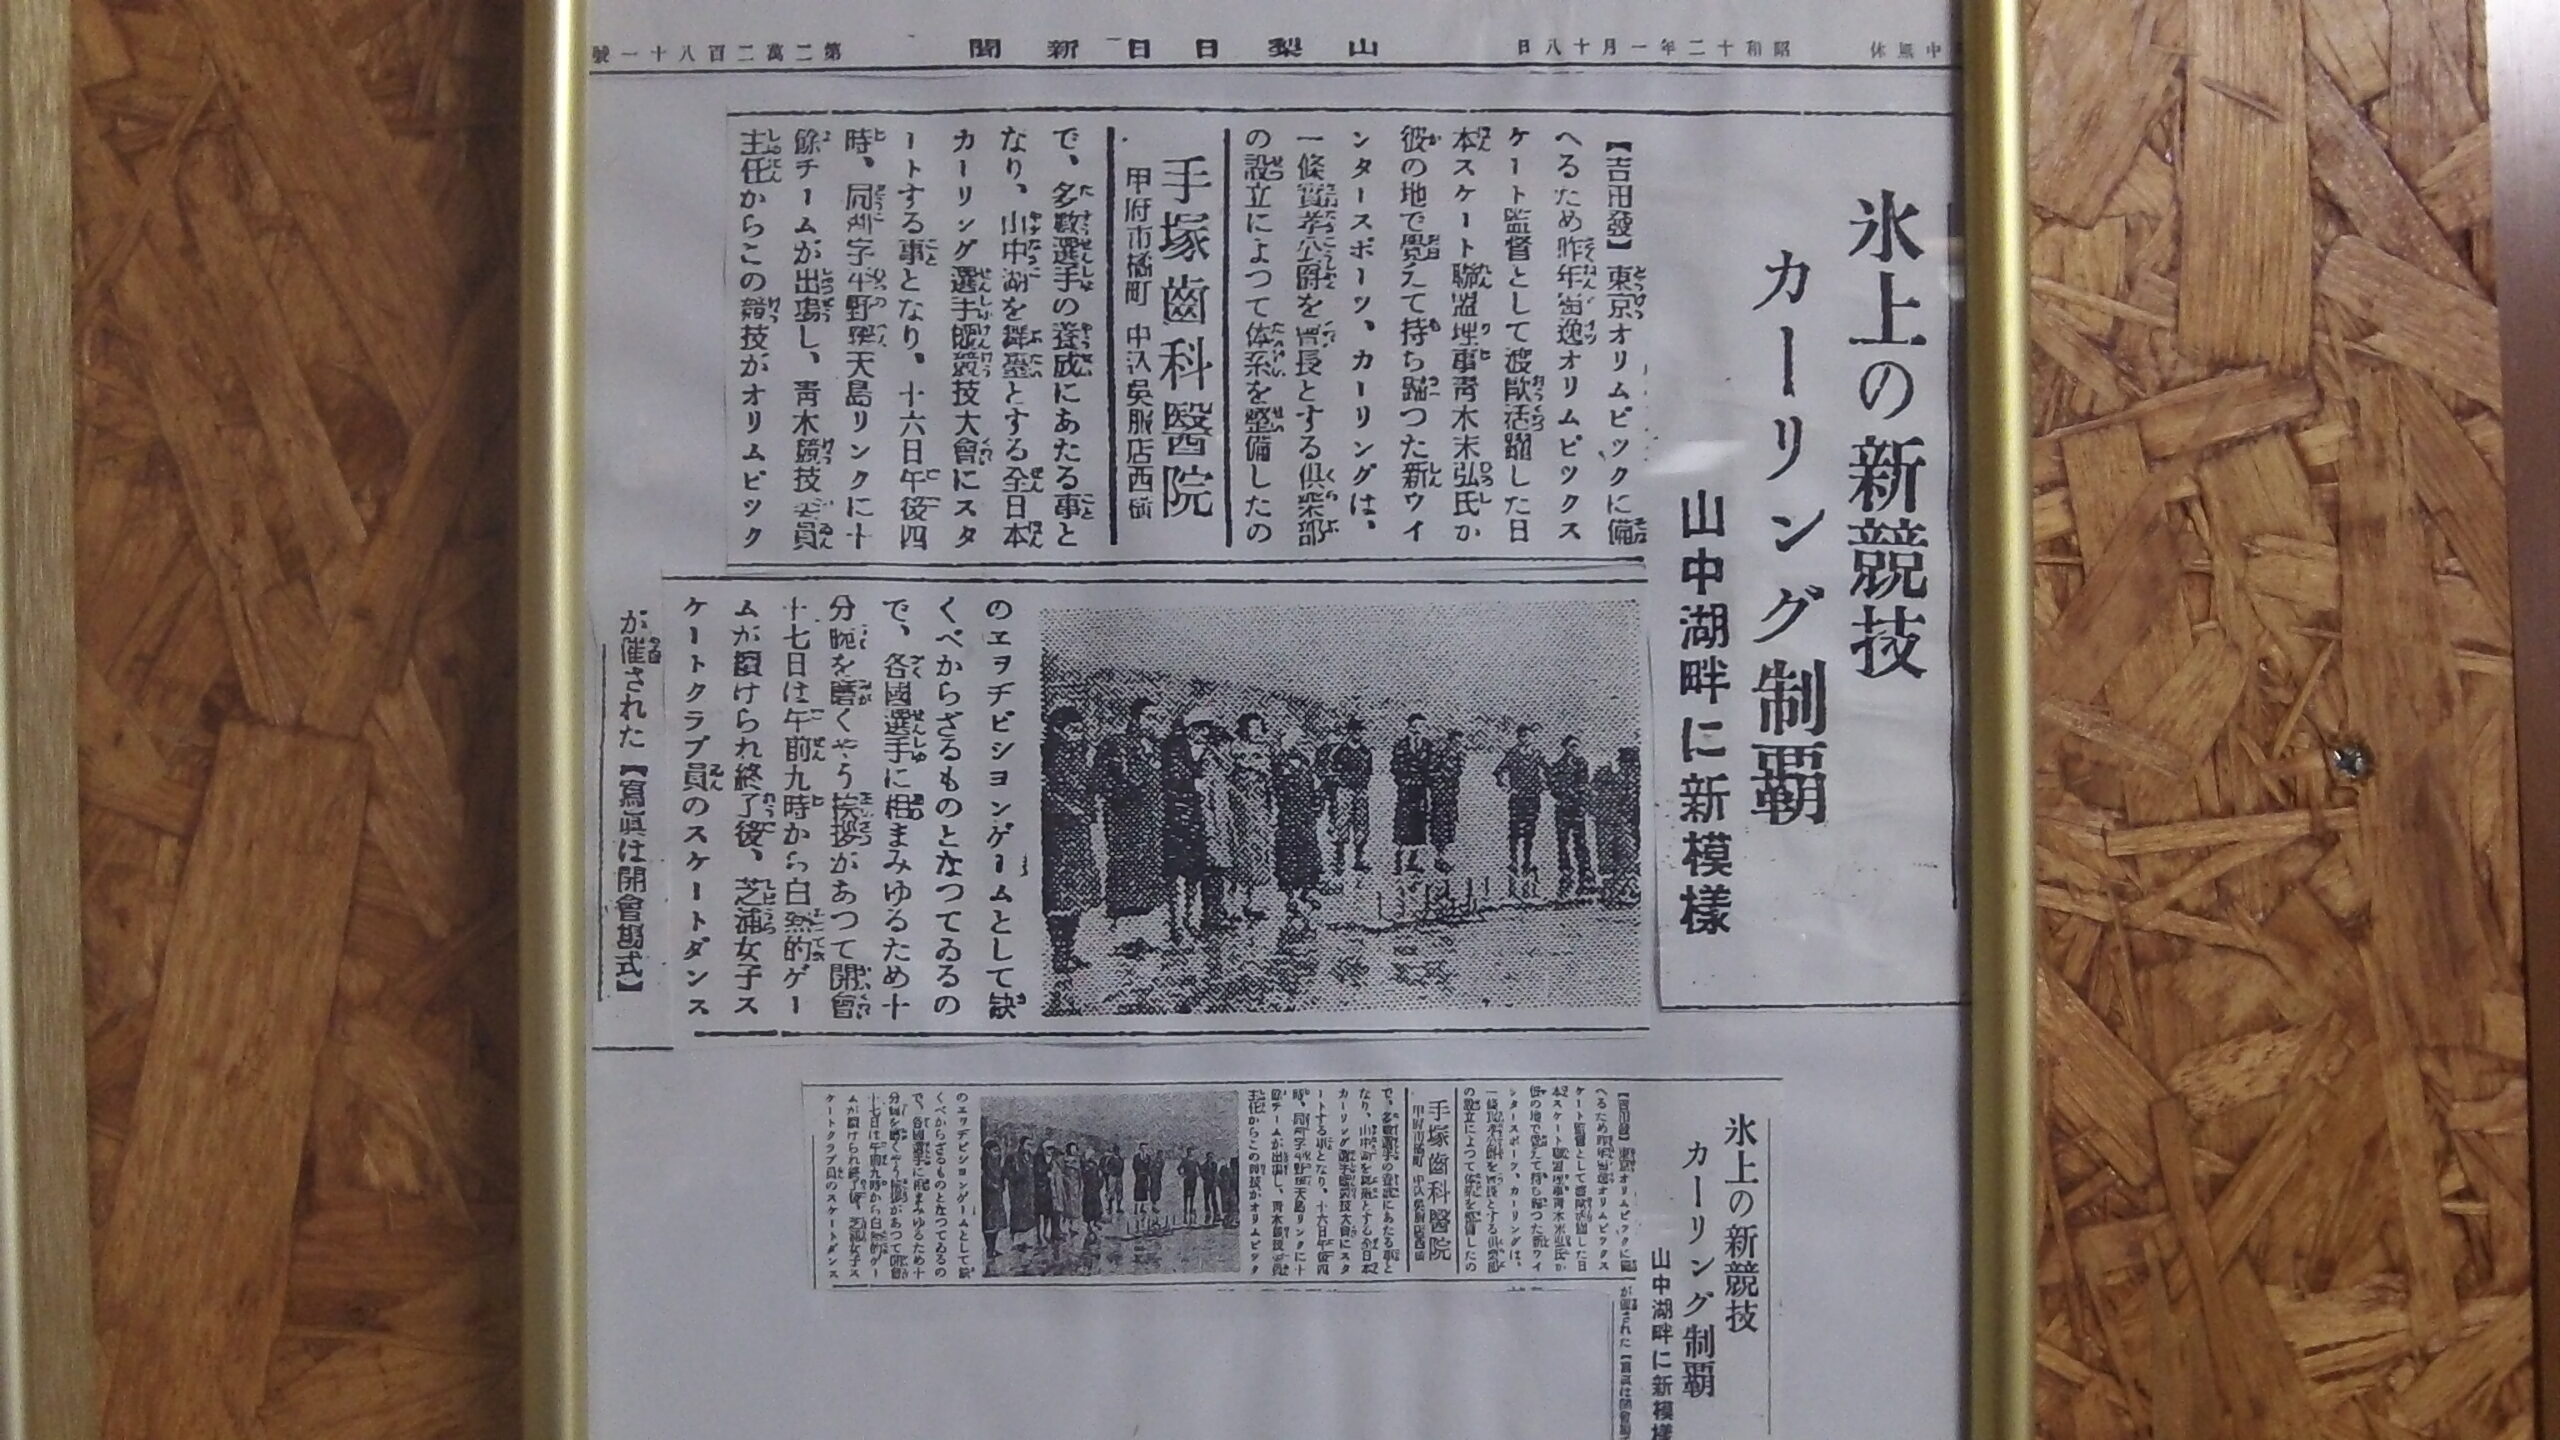 中無休
昭和十二年一月十八日
山梨日日新聞
第二萬二百八十一號
氷上の新競技
カーリング制覇
山中湖畔に新模様
【吉田發】東京オリムピックに備
へるため昨年獨逸オリムピックス
ケート監督として渡歐活躍した日
本スケート聯盟理事靑木末弘氏か
彼の地で覺えて持ち歸つた新ウイ
ンタースポーツ、カーリングは、
一條實孝公爵を會長とする倶楽部
の設立によつて体系を整備したの
手塚齒科醫院
甲府市橘町 中込吳服店西
で、多數選手の養成にあたる事と
なり、山中湖を舞臺とする全日本
カーリング選手權競技大會にスタ
ートする事となり、十六日午後四
時、同湖字平野弁天島リンクに十
餘チームが出場し、靑木競技委員
主任からこの競技がオリムピック
のエヲヂビシヨンゲームとして缺
くべからざるものとなつてゐるの
で、各國選手に相まみゆるため十
分腕を磨くやう挨拶があつて開會
十七日は午前九時から白熱的ゲー
ムが續けられ終了後、芝浦女子ス
ケートクラブ員のスケートダンス
が催された【寫眞は開會場式】
氷上の新競技
カーリング制覇
山中湖畔に新模様
【吉田發】東京オリムピックに備
へるため昨年獨逸オリムピックス
ケート監督として渡歐活躍した日
本スケート聯盟理事靑木末弘氏か
彼の地で覺えて持ち歸つた新ウイ
ンタースポーツ、カーリングは、
一條實孝公爵を會長とする倶楽部
の設立によつて体系を整備したの
手塚齒科醫院
甲府市橘町 中込吳服店西
で、多數選手の養成にあたる事と
なり、山中湖を舞臺とする全日本
カーリング選手權競技大會にスタ
ートする事となり、十六日午後四
時、同湖字平野弁天島リンクに十
餘チームが出場し、靑木競技委員
主任からこの競技がオリムピック
のエヲヂビシヨンゲームとして缺
くべからざるものとなつてゐるの
で、各國選手に相まみゆるため十
分腕を磨くやう挨拶があつて開會
十七日は午前九時から白熱的ゲー
ムが續けられ終了後、芝浦女子ス
ケートクラブ員のスケートダンス
が催された【寫眞は開會場